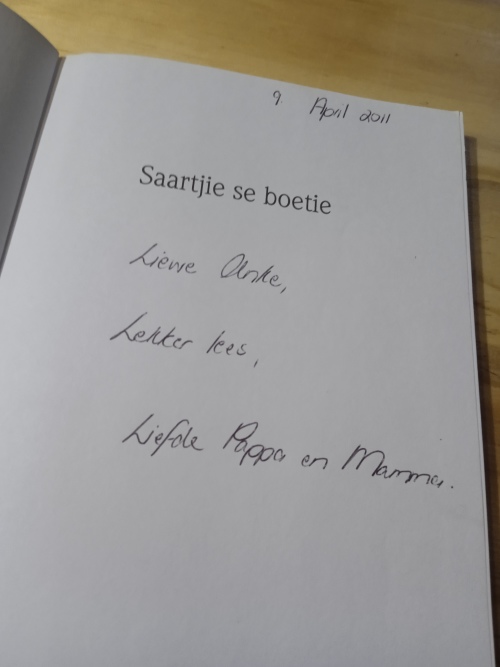 9 April 2011
Saartjie se boetie
Liewe Anke,
Lekker lees,
Liefde Pappa en Mamma.